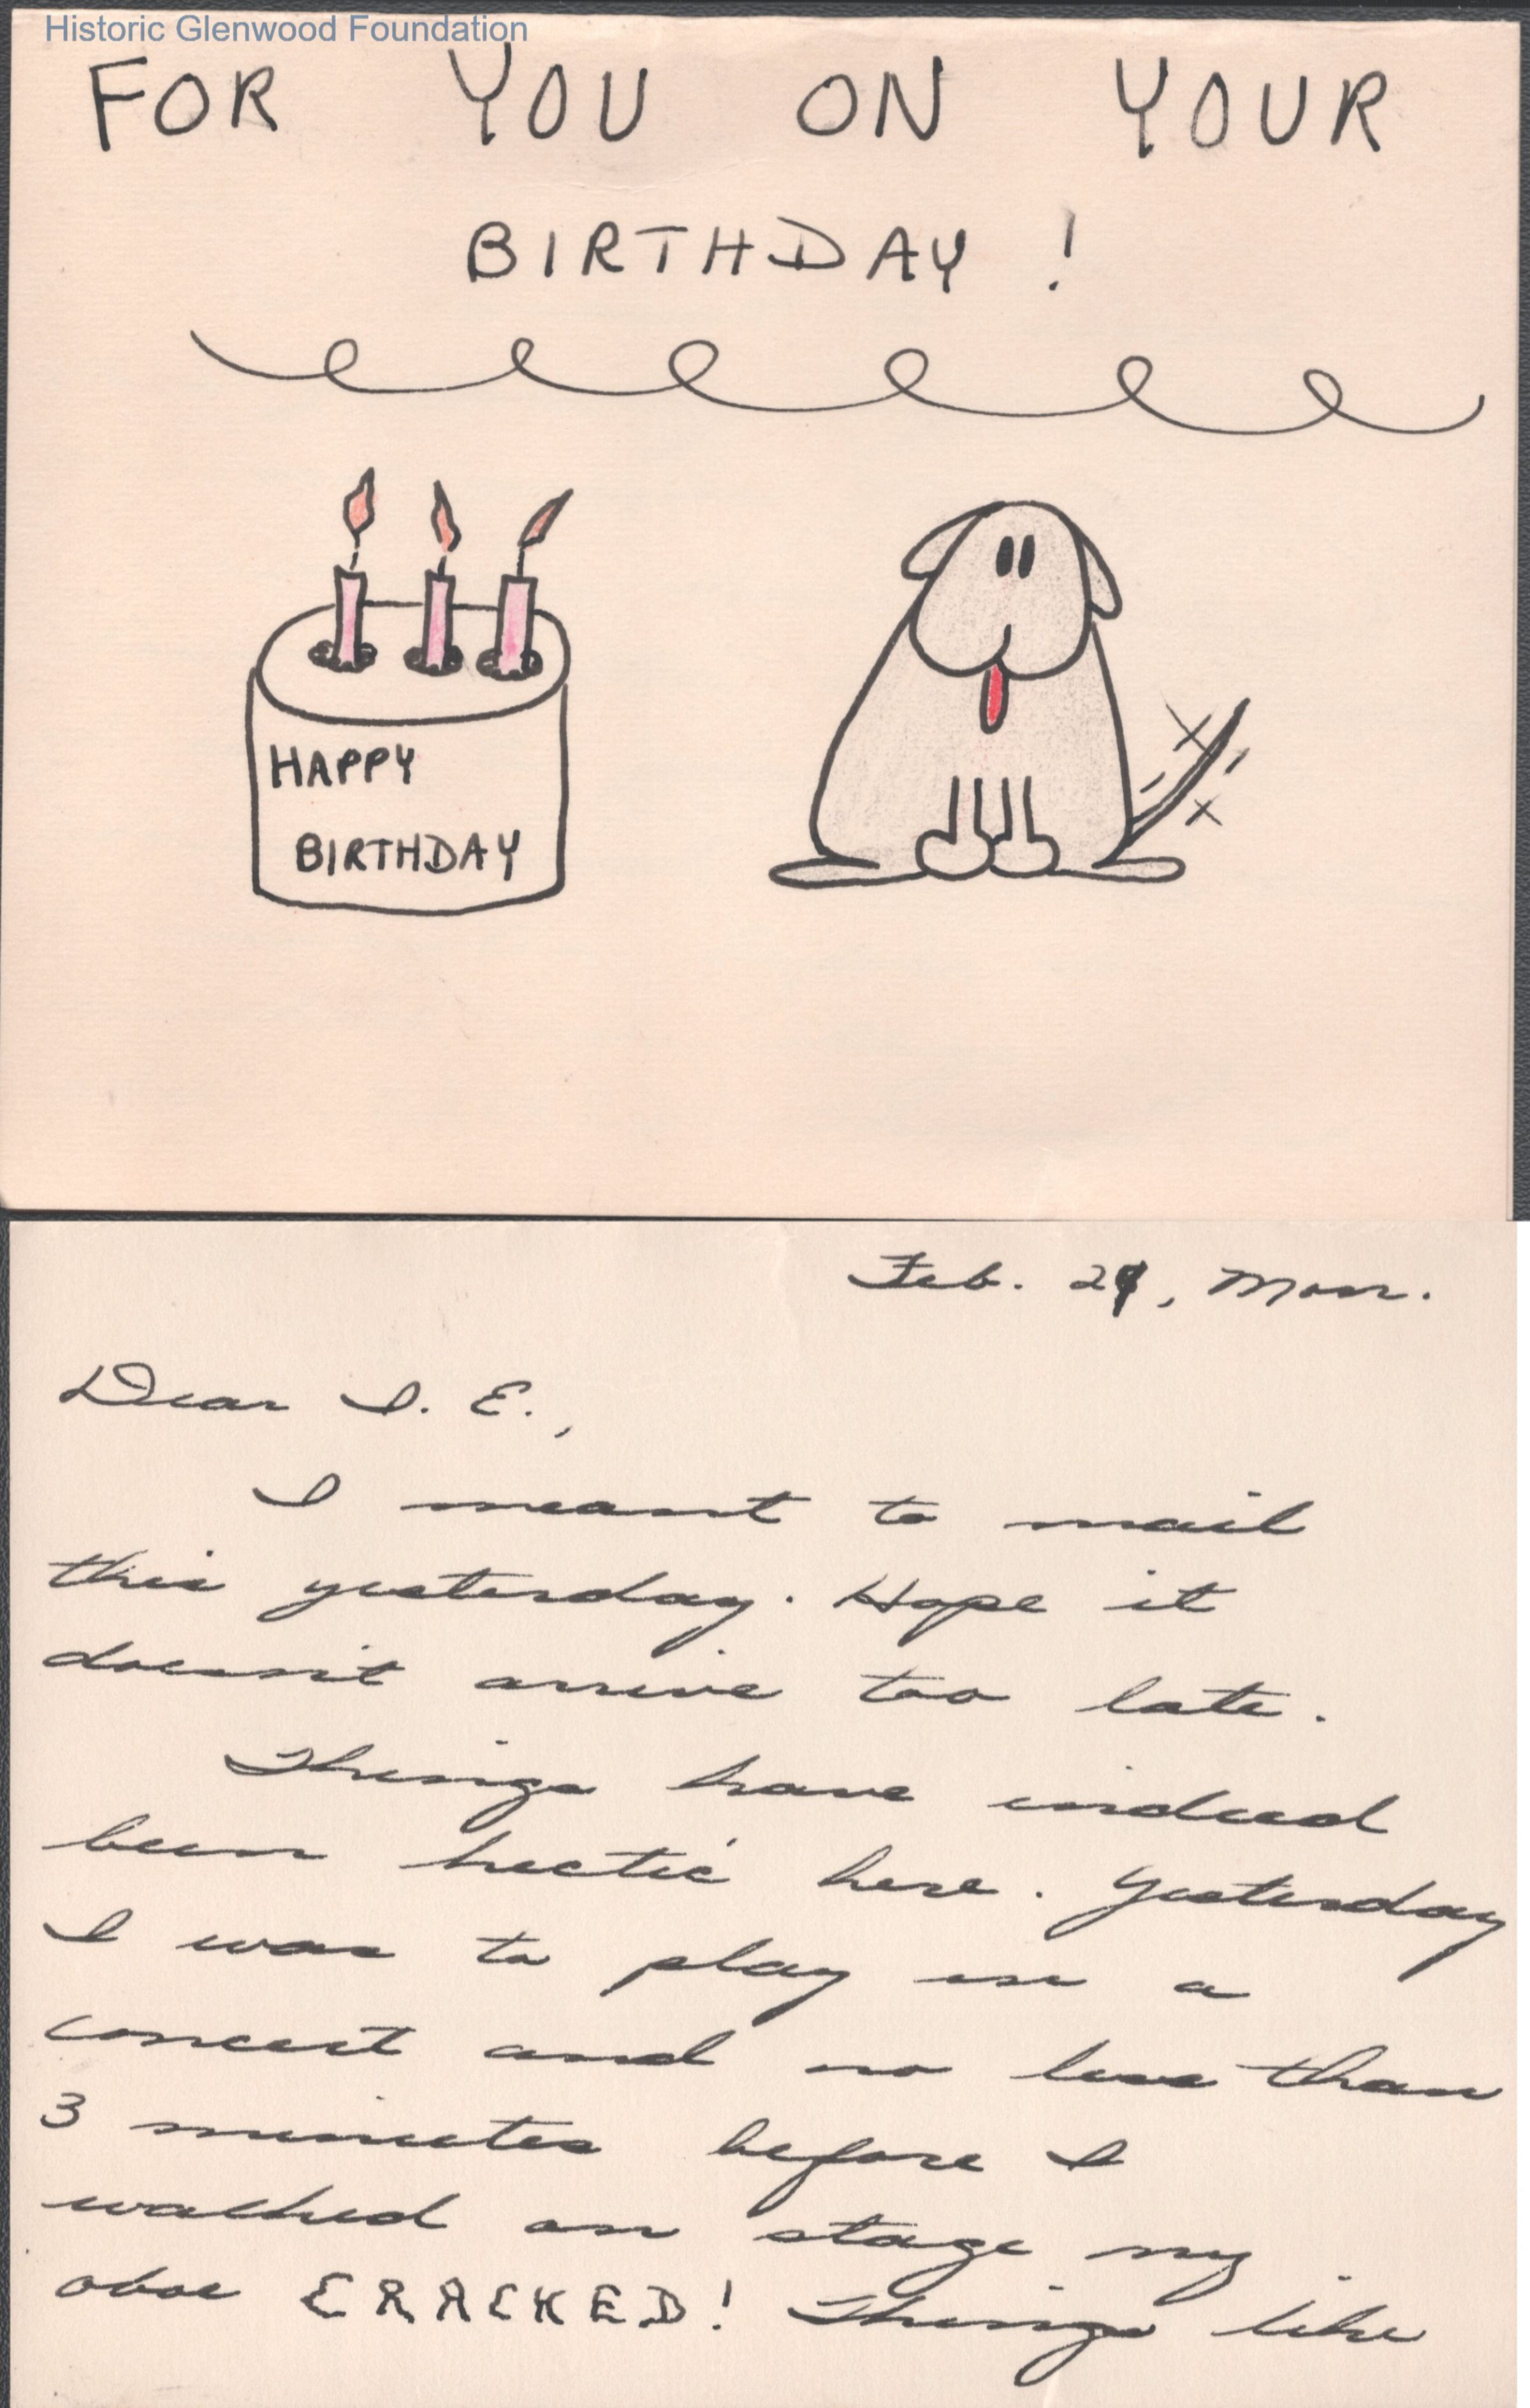 Historic Glenwood Foundation
FOR YOU ON YOUR
BIRTHDAY !
HAPPY
BIRTHDAY
Feb. , Mon.
Dear I. E.,
I meant to mail
this yesterday. Hope it
doesn't arrive too late.
Things have indeed
been hectic here. Yesterday
I was to play in a
concert and no less than
3 minutes before I
walked on stage my
oboe CRACKED! Things like